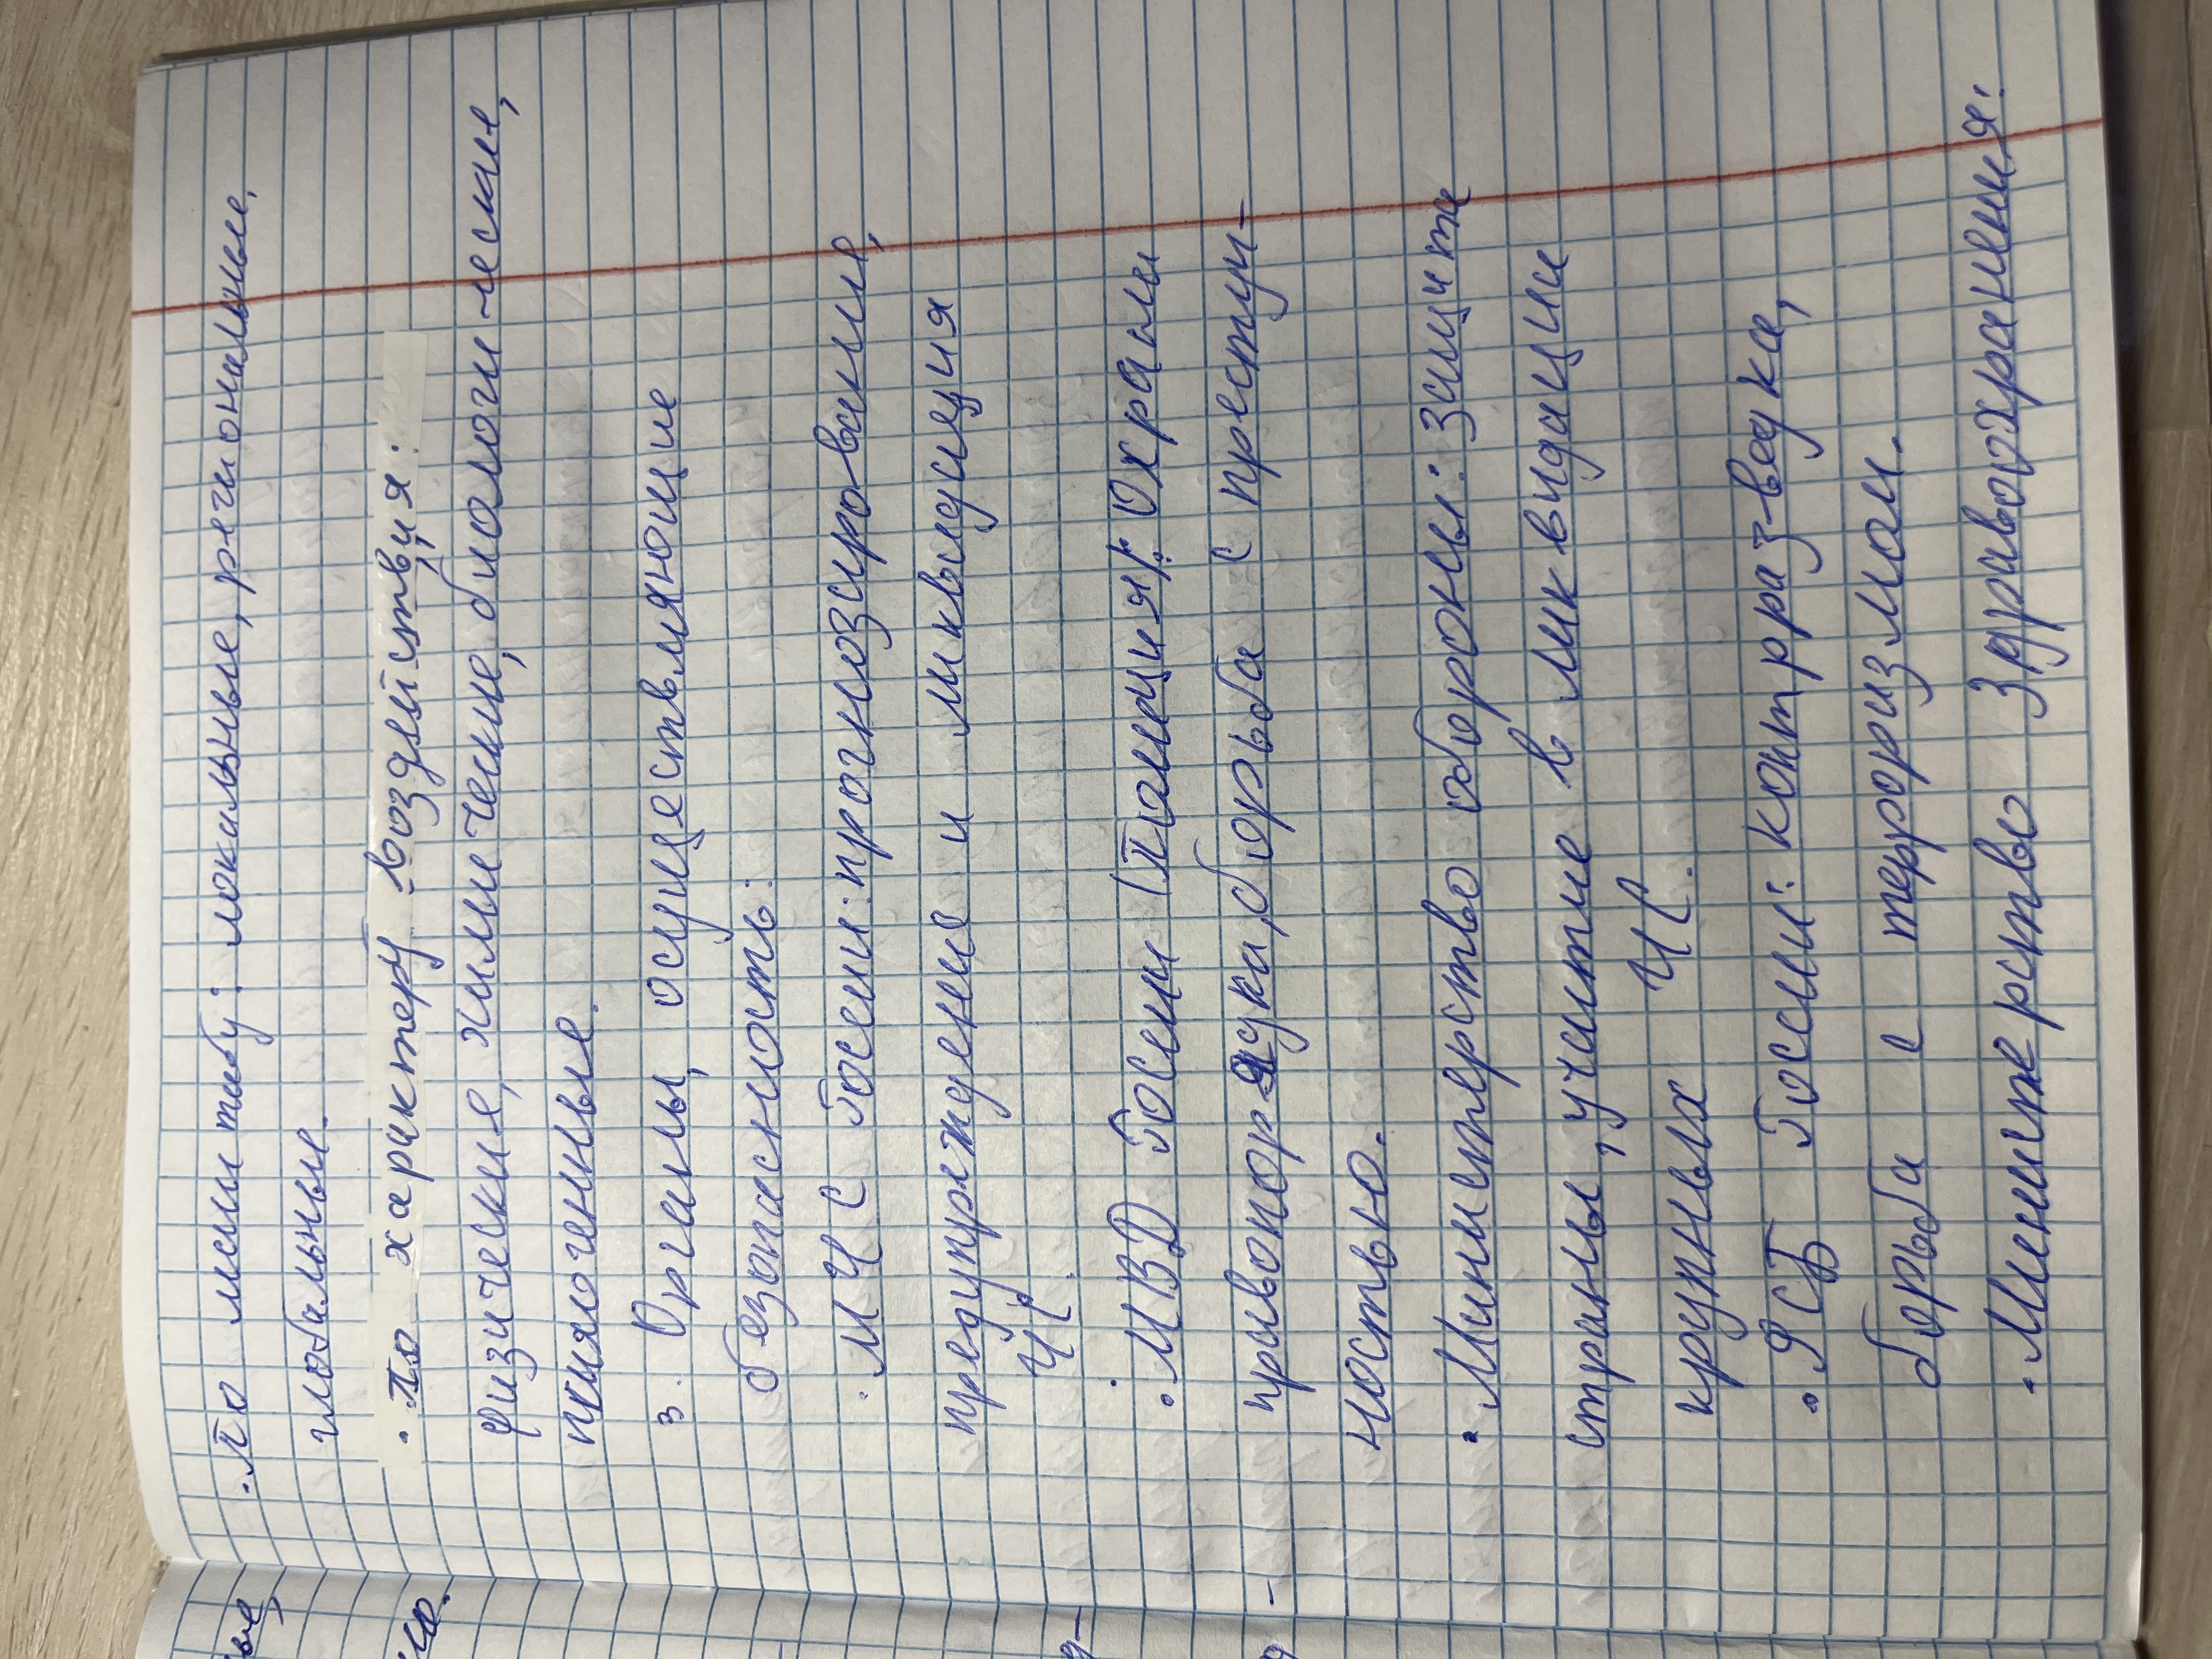 • По масштабу: локальные, региональные,
глобальные.
• По характеру воздействия:
физические, химические, биологические,
психогенные.
3. Органы, осуществляющие
безопасность:
• МЧС России: прогнозирование,
предупреждение и ликвидация
ЧС.
• МВД России (Полиция): Охрана
правопорядка, борьба с преступ-
ностью.
• Министерство обороны: защита
страны, участие в ликвидации
крупных ЧС.
• ФСБ России: контрразведка,
борьба с терроризмом.
• Министерство Здравоохранения: